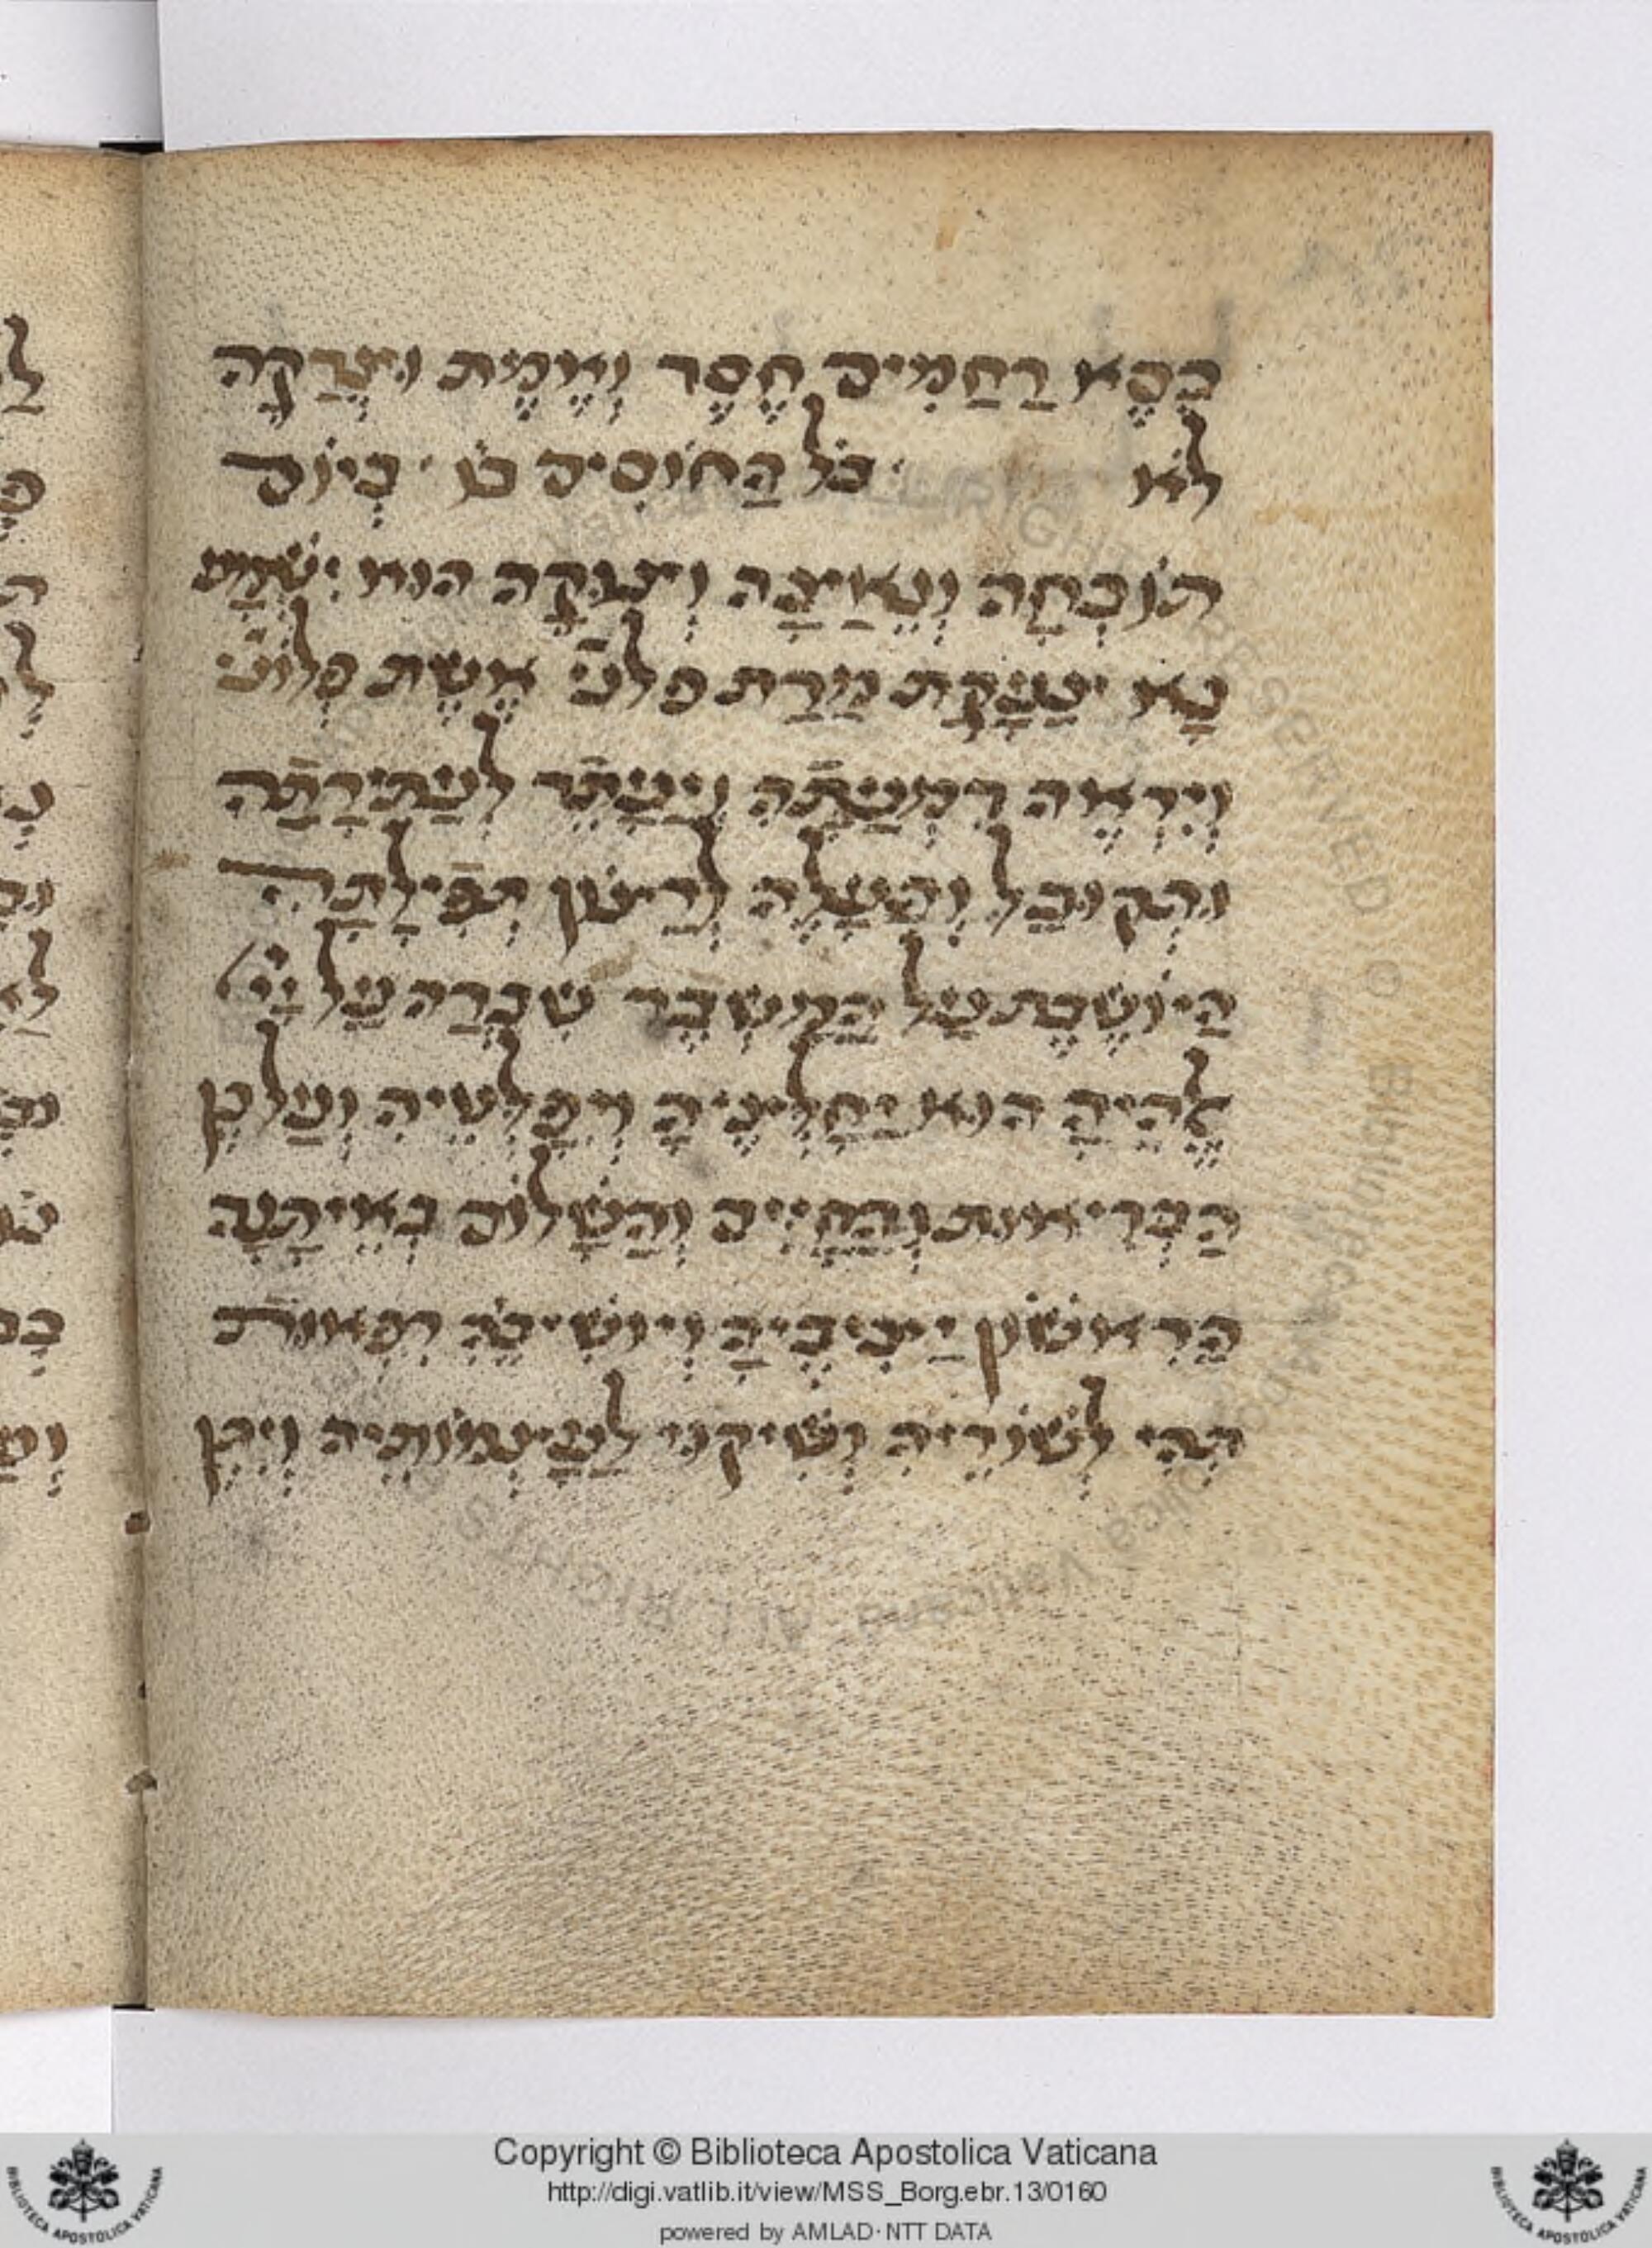 כִסֵא רַחֲמִים חֶסֶד וְאֶמֶת וּצְדָקָה
לֹא כֹל הַחוֹסִים בוֹ. בְיוֹם
תוֹכְחָה וְנְאָצָה וְצוּקָה הוּא יִשְׁמַע
נָא צַעֲקַת מָרַת פלנ̇י אֶשֶת פְלוֹנ̇י
וְיִרְאֶה דִמְעָתָהּ וְיֵעָתֵר לְעַתִירָתָהּ
וּתְקוּבַל וְתַעֲלֶה לְרָצוֹן תְפִילָתָהּ
הַיוֹשֶׁבֶת עַל הַמַשְׁבֵר שִבְרָהּ עַל יְיָ
אֱלֹהֶיהָ הוּא יְחַלְצֶיהָ וִיפַלְטֶיהָ וְעַל כֵן
הַבְרִיאוּת וְהַחַיִים וְהַשָׁלוֹם כְאֵיתָנָהּ
הָרִאשׁוֹן יַצִיבֶיהָ וְיוֹשִׁיטֶהָ רִפְאוּת
תְהִי לְשׁוֹרֶיהָ וְשִׁיקוּי לַעֲצְמוֹתֶיהָ וְכֵן
Copyright © Biblioteca Apostolica Vaticana
http://digi.vatlib.it/view/MSS_Borg.ebr.13/0160
powered by AMLAD·NTT DATA